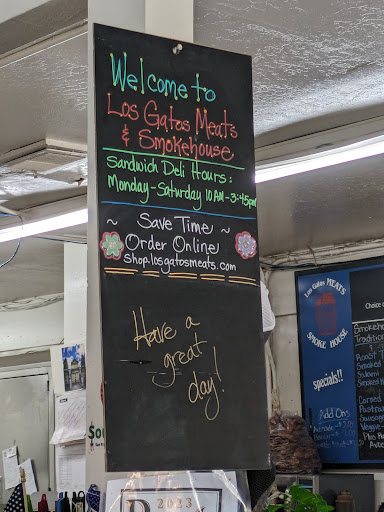 Welcome to
Los Gatos Meats
& Smokehouse
Sandwich Deli Hours:
Monday-Saturday 10AM-3:45pm
~ Save Time ~
Order Online
shop.losgatosmeats.com
Have a
great
day!
2023
Los Gatos MEATS
SMOKE HOUSE
specials!!
Add Ons
Choice
Smokeho
Tradition
Roast
Smoked
Salami
Smoked
Corned
Pastra
Sausag
Veggie
Plus